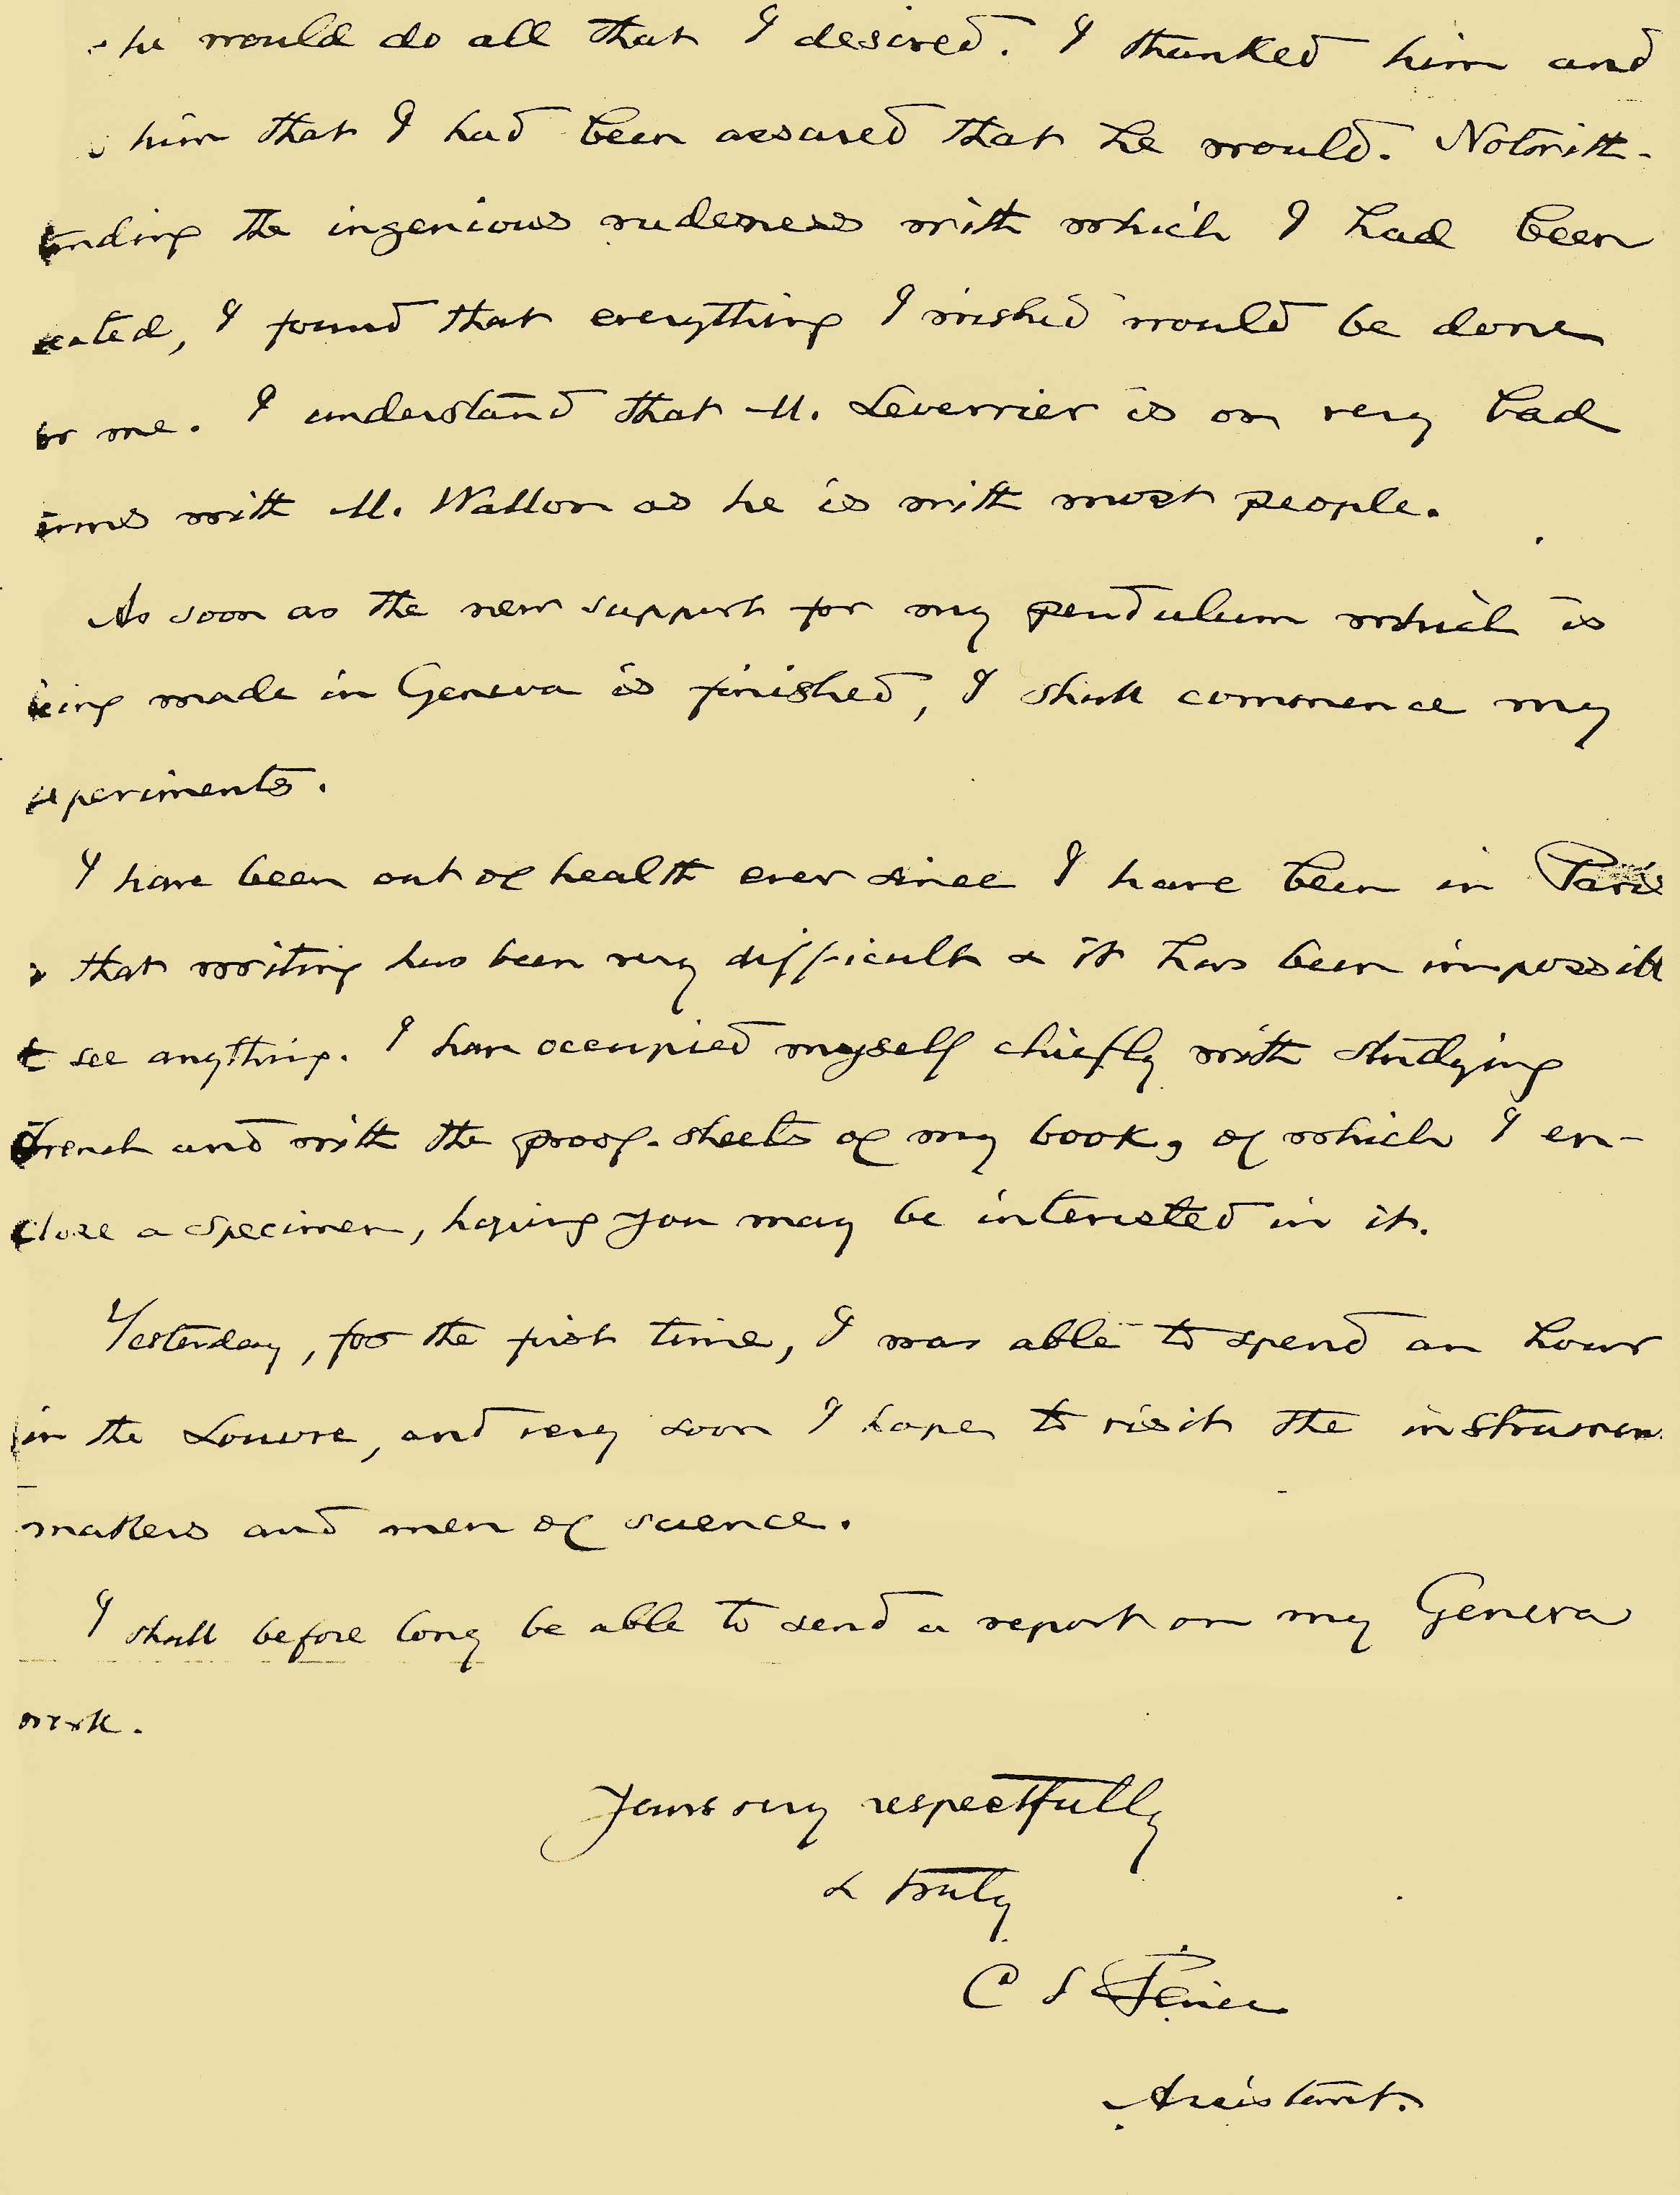 he would do all that I desired. I thanked him and
him that I had been assured that he would. Notwith-
anding the ingenious rudeness with which I had been
eated, I found that everything I wished would be done
or me. I understand that M. Leverrier is on very bad
erms with M. Wallon as he is with most people.
As soon as the new support for my pendulum which is
eing made in Geneva is finished, I shall commence my
xperiments.
I have been out of health ever since I have been in Paris
that writing has been very difficult & it has been impossibl
t see anything. I have occupied myself chiefly with studying
French and with the proof-sheets of my book, of which I en-
close a specimen, hoping you may be interested in it.
Yesterday, for the first time, I was able to spend an hour
in the Louvre, and very soon I hope to visit the instrumen
makers and men of science.
I shall before long be able to send a report on my Geneva
work.
Yours very respectfully
& truly
C S Peirce
Assistant.